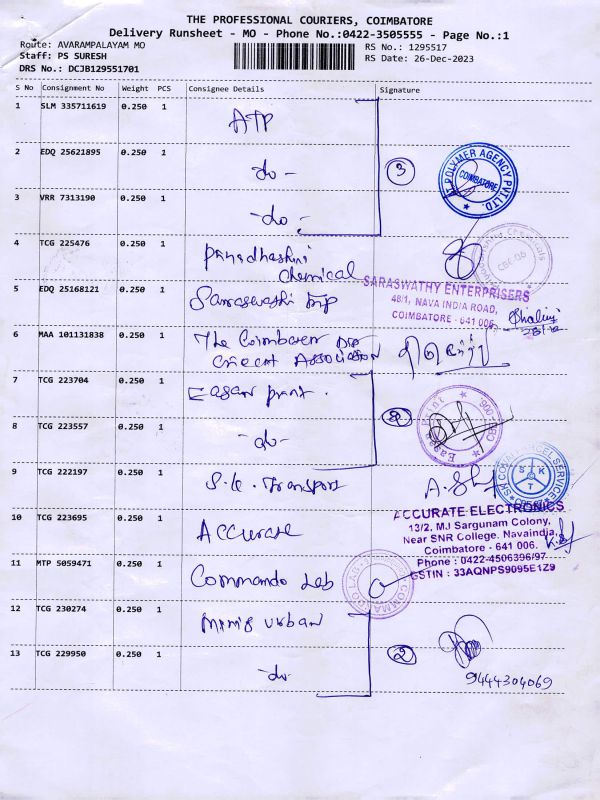 THE PROFESSIONAL COURIERS, COIMBATORE
Delivery Runsheet - MO - Phone No.:0422-3505555 - Page No.:1
Route: AVARAMPALAYAM MO
RS No.: 1295517
Staff: PS SURESH
RS Date: 26-Dec-2023
DRS No.: DCJB129551701
S No Consignment No Weight PCS Consignee Details Signature
1 SLM 335711619 0.250 1
ATP
2 EDQ 25621895 0.250 1
-do-
3
POLYMER AGENCY PVT.LTD.
COIMBATORE
3 VRR 7313190 0.250 1
-do-
4 TCG 225476 0.250 1
Chemical
CBE-06
5 EDQ 25168121 0.250 1
SARASWATHY ENTERPRISERS
48/1, NAVA INDIA ROAD,
COIMBATORE - 641 006
Shalini
6 MAA 101131838 0.250 1
The Coimbatore
Association
7 TCG 223704 0.250 1
Easan print.
Easan Print
8 TCG 223557 0.250 1
-do-
9 TCG 222197 0.250 1
S.K. Transport
S K T
10 TCG 223695 0.250 1
Accurate
ACCURATE ELECTRONICS
13/2, MJ Sargunam Colony,
Near SNR College, Navaindia,
Coimbatore - 641 006.
Phone : 0422-4506396/97
GSTIN : 33AQNPS9095E1Z9
11 MTP 5059471 0.250 1
Commando Lab
COMMANDO LAB
12 TCG 230274 0.250 1
urban
2
13 TCG 229950 0.250 1
-do-
9444304069